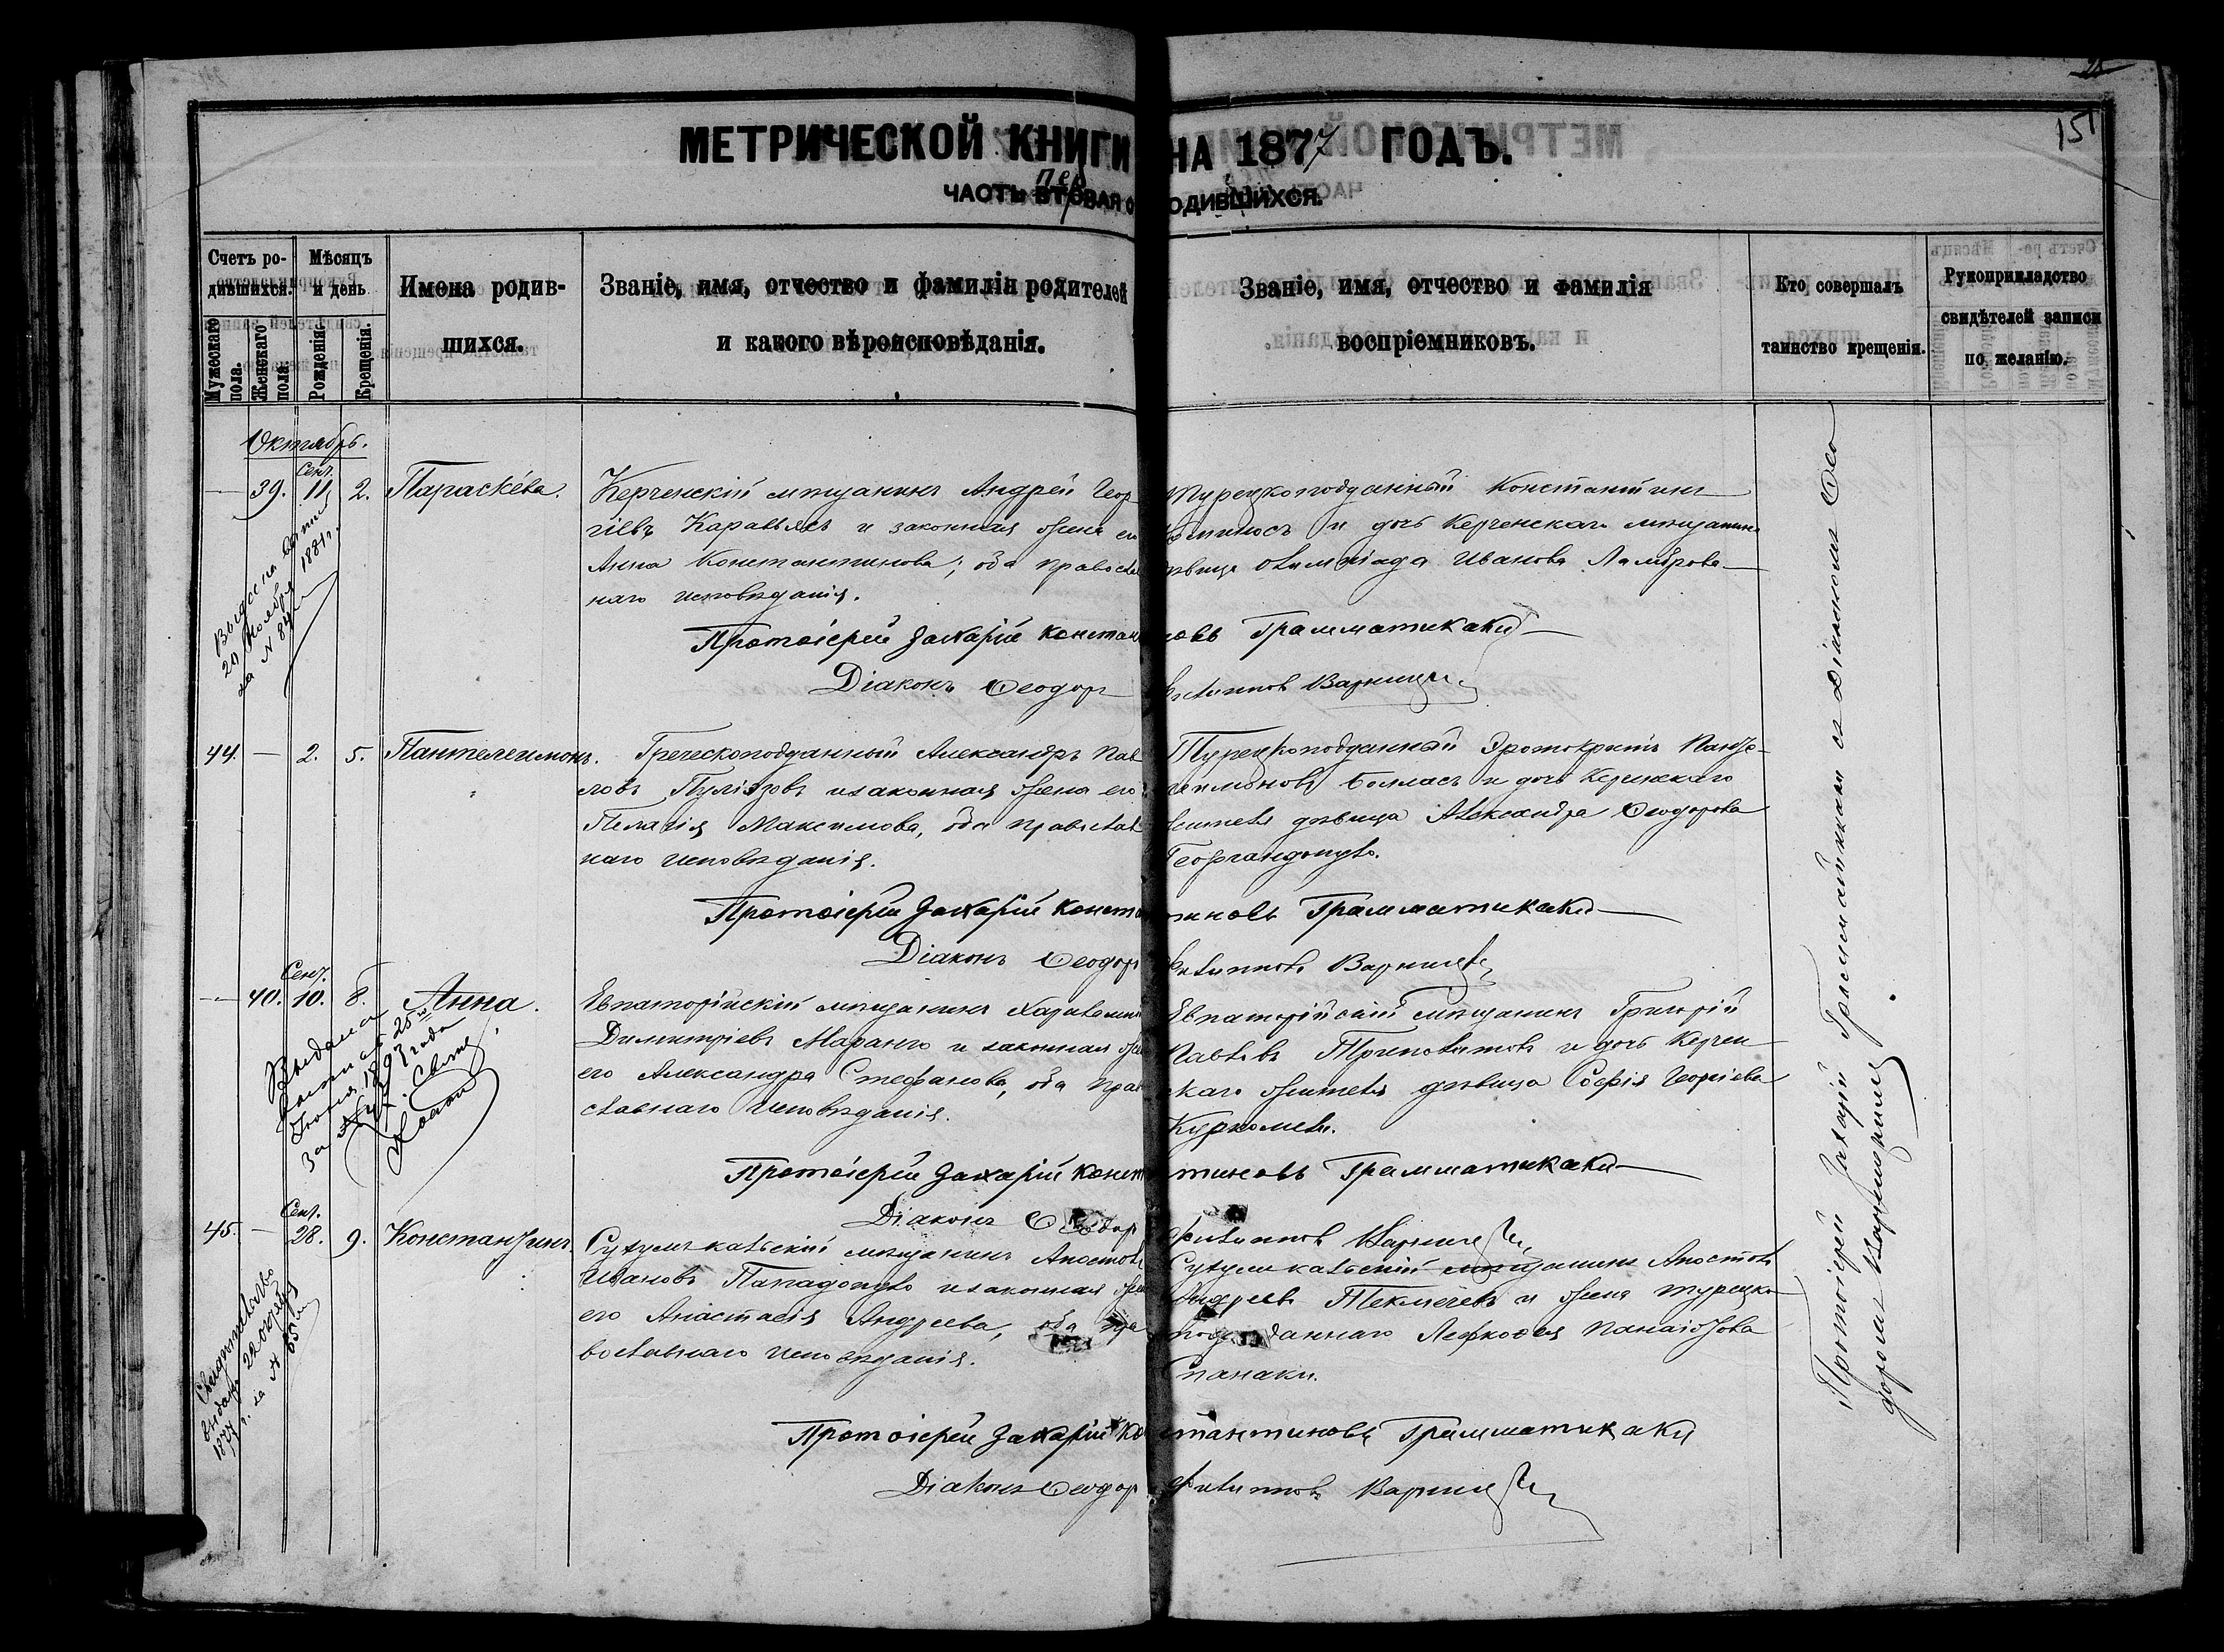 151
МЕТРИЧЕСКОЙ КНИГИ НА 1877 ГОДЪ.
пер
ЧАСТЬ ВТОРАЯ О РОДИВШИХСЯ.
Счетъ ро-
дившихся.
Мужескаго пола.
Женскаго пола.
Мѣсяцъ
и день
Рожденія.
Крещенія.
Имена родив-
шихся.
Званіе, имя, отчество и фамиліи родителей
и какого вѣроисповѣданія.
Званіе, имя, отчество и фамилія
воспріемниковъ.
Кто совершалъ
таинство крещенія.
Рукоприкладство
свидѣтелей записи
по желанію.
Октябрь.
Сент.
— 39. 11 2. Параскева.
Керченскій мѣщанинъ Андрей Геор
гіевъ и законная жена его
Анна Константинова; оба православ
наго исповѣданія.
Турецкоподданный Константинъ
и дочь Керченскаго мѣщанина
дѣвица Олимпіада Иванова
Протоіерей Захарій Константиновъ Грамматикаки
Діаконъ Ѳеодоръ Филипповъ
20 Ноября 1881 г.
за N 84
44. — 2. 5. Пантелеимонъ.
Греческоподданный Александръ Пав
ловъ и законная жена его
Пелагія Максимова, оба православ
наго исповѣданія.
Турецкоподданный
и дочь Керченскаго
жителя дѣвица Александра Ѳеодорова
Георгандопуло.
Протоіерей Захарій Константиновъ Грамматикаки
Діаконъ Ѳеодоръ Филипповъ
Сент.
— 40. 10. 8. Анна.
Евпаторійскій мѣщанинъ Харалампій
Димитріевъ Маранго и законная жена
его Александра Стефанова, оба право
славнаго исповѣданія.
Евпаторійскій мѣщанинъ Григорій
Павловъ и дочь Керчен
скаго жителя дѣвица Софія Георгіева
Протоіерей Захарій Константиновъ Грамматикаки
Діаконъ Ѳеодоръ Филипповъ
Выдана
25
1897 года
за №
Сент.
45. — 28. 9. Константинъ.
Сухумъ-кальскій мѣщанинъ Апостолъ
Ивановъ Пападопуло и законная жена
его Анастасія Андреева, оба пра
вославнаго исповѣданія.
Сухумъ-кальскій мѣщанинъ Апостолъ
Андреевъ и жена турецко
подданнаго
Спанаки.
Протоіерей Захарій Константиновъ Грамматикаки
Діаконъ Ѳеодоръ Филипповъ
Свидѣтельство
выдано 22 октября
1877 г. за N 65
Протоіерей Захарій Грамматикаки съ Діакономъ Ѳео
доромъ